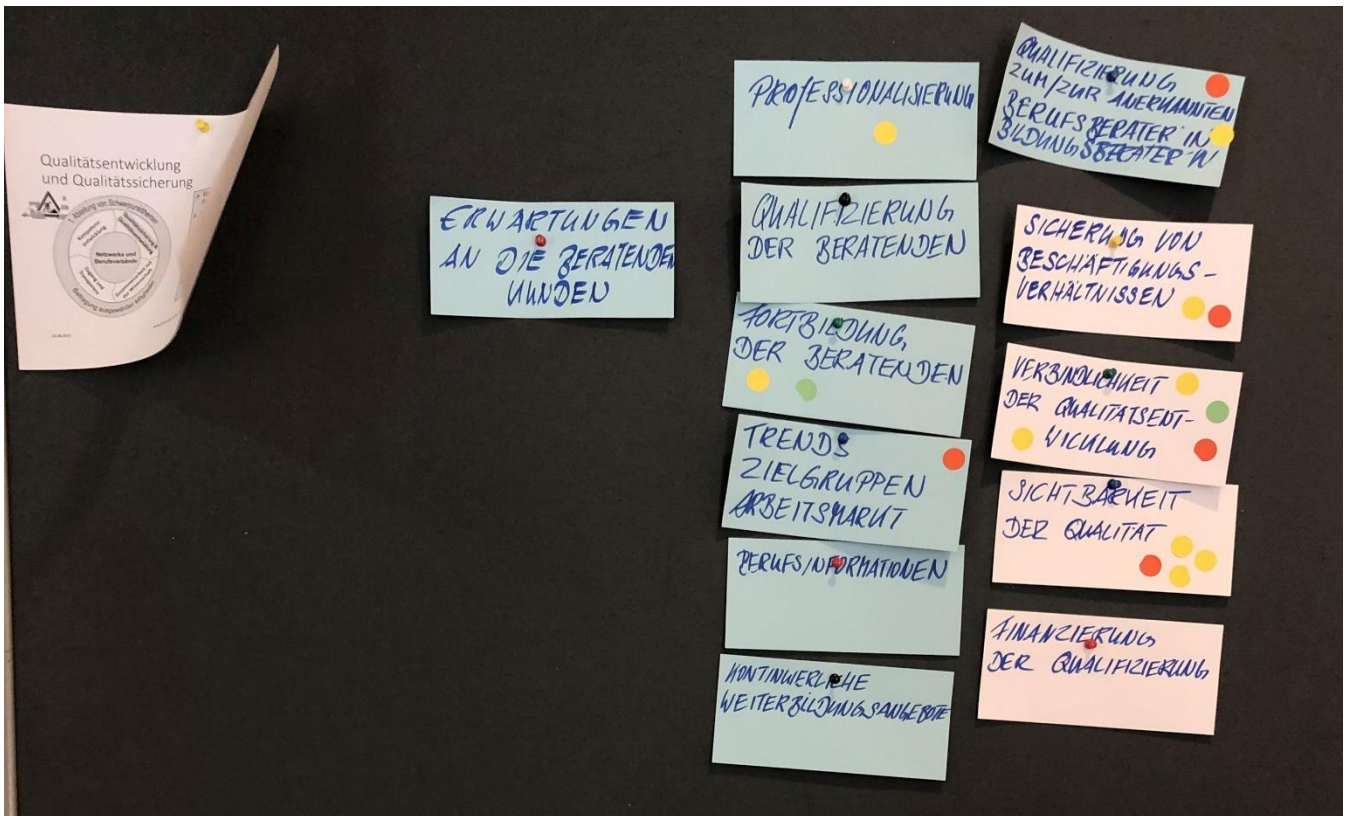 Qualitätsentwicklung
und Qualitätssicherung
Netzwerke und
Berufsverbände
ERWARTUNGEN
AN DIE BERATENDEN
KUNDEN
PROFESSIONALISIERUNG
QUALIFIZIERUNG
DER BERATENDEN
FORTBILDUNG
DER BERATENDEN
TRENDS
ZIELGRUPPEN
ARBEITSMARKT
BERUFSINFORMATIONEN
KONTINUIERLICHE
WEITERBILDUNGSANGEBOTE
QUALIFIZIERUNG
ZUM/ZUR ANERKANNTEN
BERUFSBERATER*IN
BILDUNGSBERATER*IN
SICHERUNG VON
BESCHÄFTIGUNGS-
VERHÄLTNISSEN
VERBINDLICHKEIT
DER QUALITÄTSENT-
WICKLUNG
SICHTBARKEIT
DER QUALITÄT
FINANZIERUNG
DER QUALIFIZIERUNG